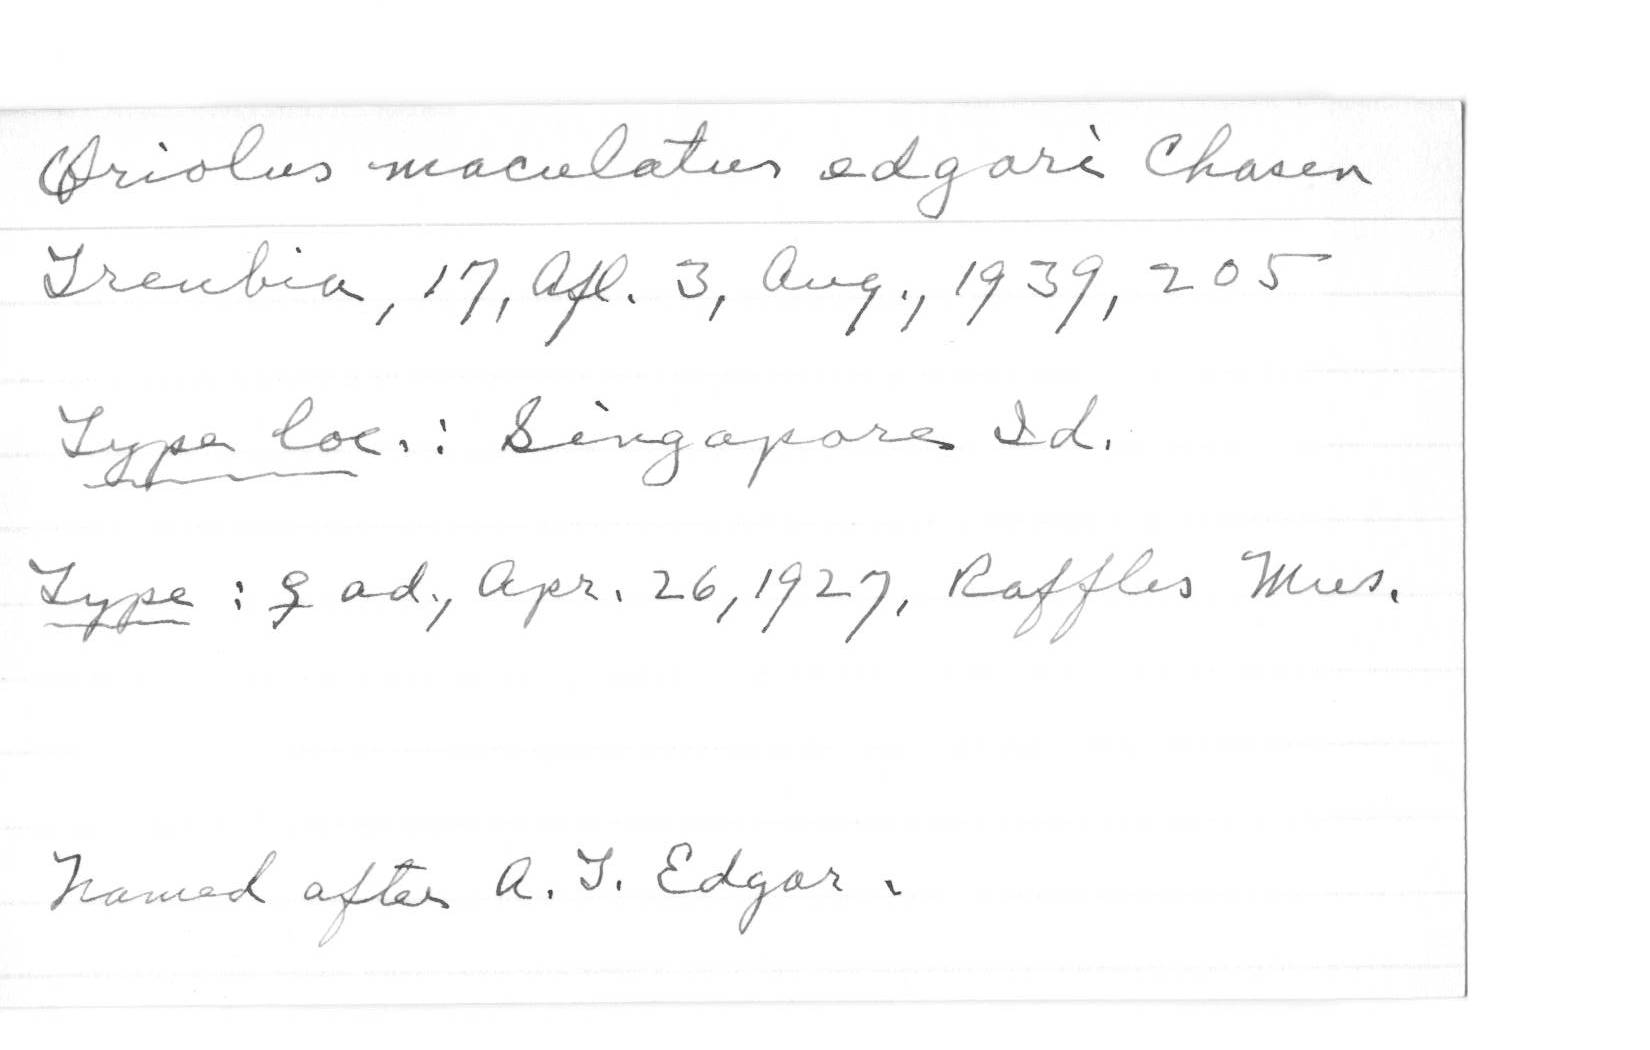 Oriolus maculatus edgari Chasen
Treubia, 17, Afl. 3, Aug., 1939, 205
Type loc.: Singapore Id.
Type : ♀ ad., Apr. 26, 1927, Raffles Mus.
Named after A. T. Edgar.